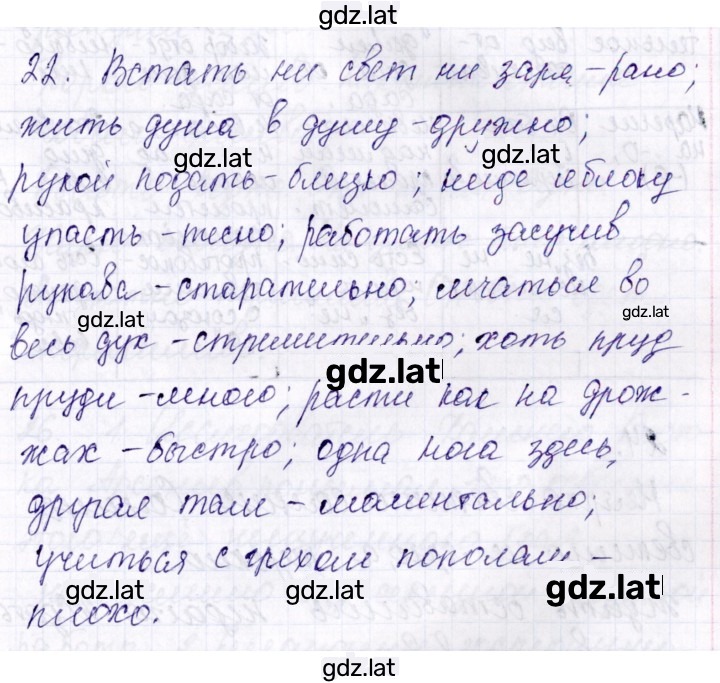 gdz.lat
22. Встать ни свет ни заря - рано;
жить душа в душу - дружно;
gdz.lat gdz.lat
рукой подать - близко; негде яблоку
упасть - тесно; работать засучив
рукава - старательно; мчаться во
gdz.lat gdz.lat
весь дух - стремительно; хоть пруд
gdz.lat
пруди - много; расти как на дрож-
жах - быстро; одна нога здесь,
другая там - моментально;
учиться с грехом пополам -
gdz.lat gdz.lat
плохо.
gdz.lat